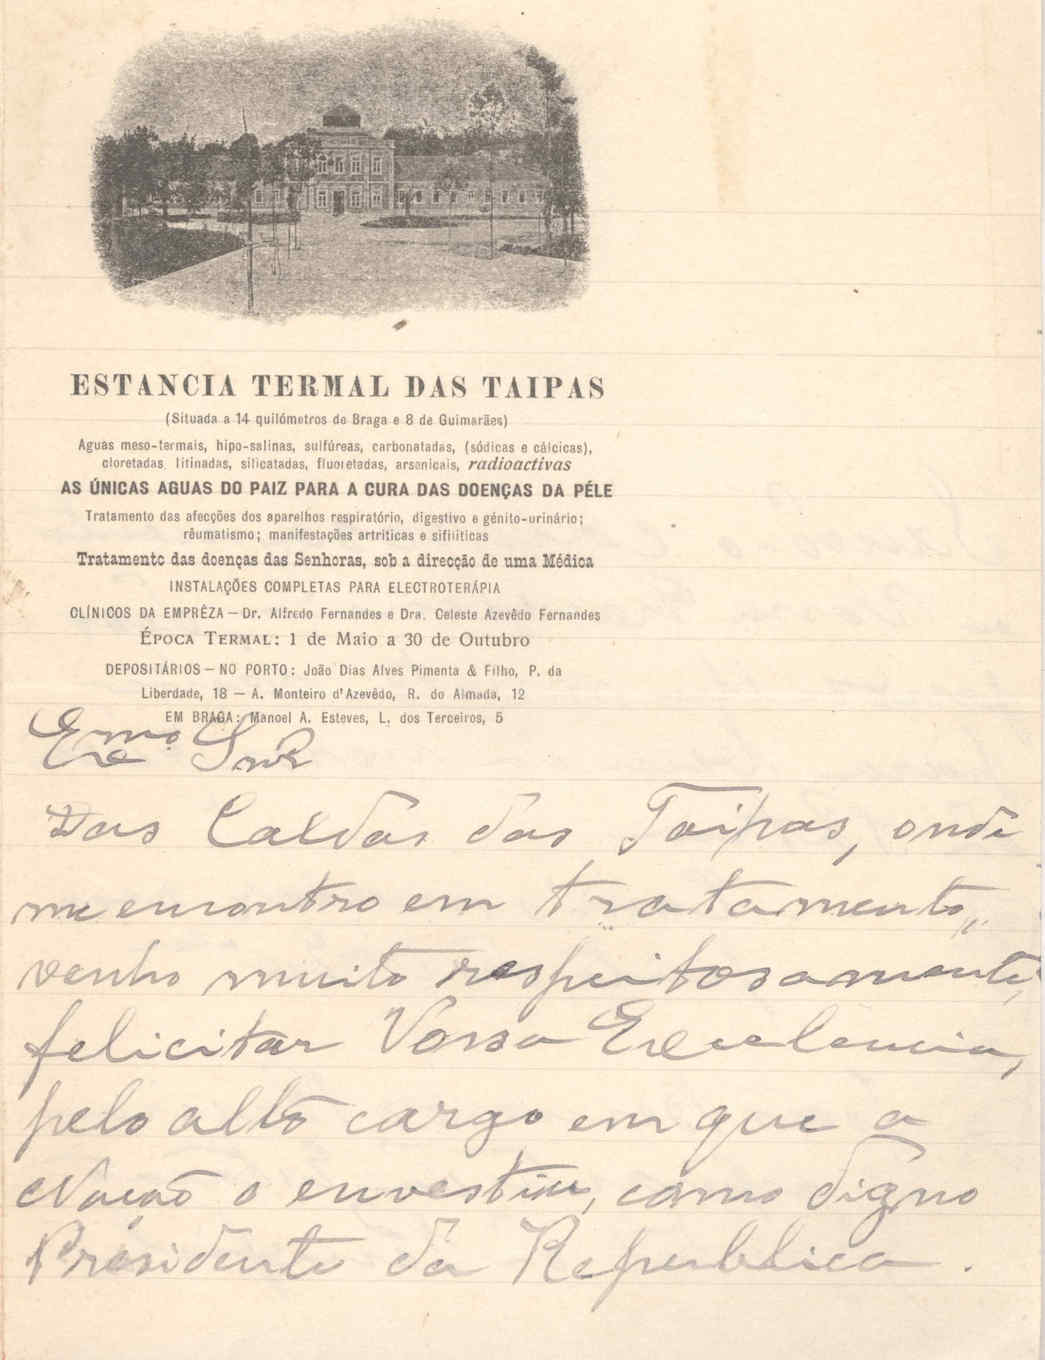 ESTANCIA TERMAL DAS TAIPAS
(Situada a 14 quilómetros de Braga e 8 de Guimarães)
Aguas meso-termais, hipo-salinas, sulfúreas, carbonatadas, (sódicas e cálcicas),
cloretadas, litinadas, silicatadas, fluoretadas, arsenicais, radioactivas
AS ÚNICAS AGUAS DO PAIZ PARA A CURA DAS DOENÇAS DA PÉLE
Tratamento das afecções dos aparelhos respiratório, digestivo e génito-urinário;
rêumatismo; manifestações artriticas e sifiliticas
Tratamento das doenças das Senhoras, sob a direcção de uma Médica
INSTALAÇÕES COMPLETAS PARA ELECTROTERÁPIA
CLÍNICOS DA EMPRÊZA — Dr. Alfredo Fernandes e Dra. Celeste Azevêdo Fernandes
ÉPOCA TERMAL: 1 de Maio a 30 de Outubro
DEPOSITÁRIOS — NO PORTO: João Dias Alves Pimenta & Filho, P. da
Liberdade, 18 — A. Monteiro d'Azevêdo, R. do Almada, 12
EM BRAGA: Manoel A. Esteves, L. dos Terceiros, 5
Exmo. Snr
Das Caldas das Taipas, onde
me encontro em tratamento,
venho muito respeitosamente,
felicitar Vossa Excelencia,
pelo alto cargo em que a
Nação o envestiu, como digno
Presidente da Republica.